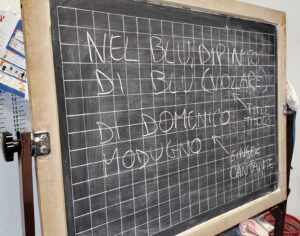 NEL BLU, DIPINTO
DI BLU (VOLARE)
TITOLO
DI DOMENICO
MODUGNO
SINGER
CANTANTE